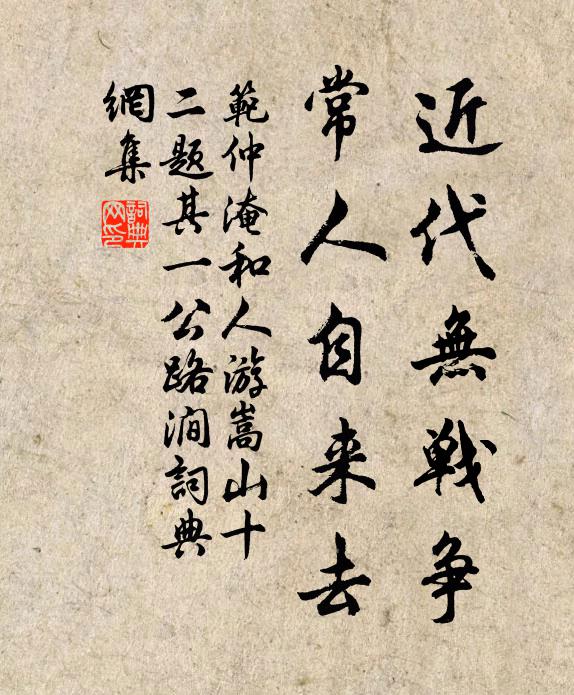 近代無戰争
常人自来去
範仲淹和人游嵩山十
二題其一公路澗詞典
網集
詞典
网印